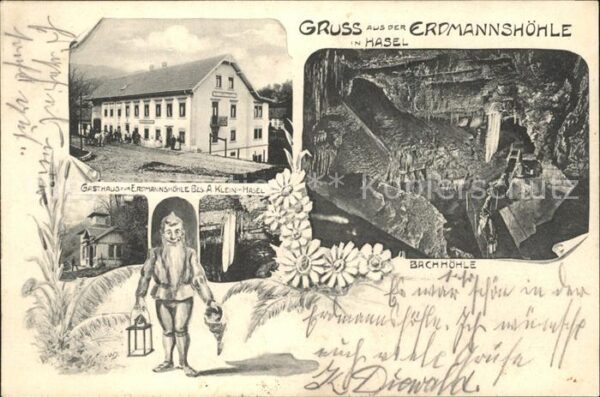 GRUSS AUS DER ERDMANNSHÖHLE
IN HASEL
GASTHAUS ZUR ERDMANNSHÖHLE BES. A. KLEIN - HASEL
BACHHÖHLE
Es war schön in der
Erdmannshöhle. Ich wünsche
euch viele Grüße
K. Diewald.
Kopierschutz